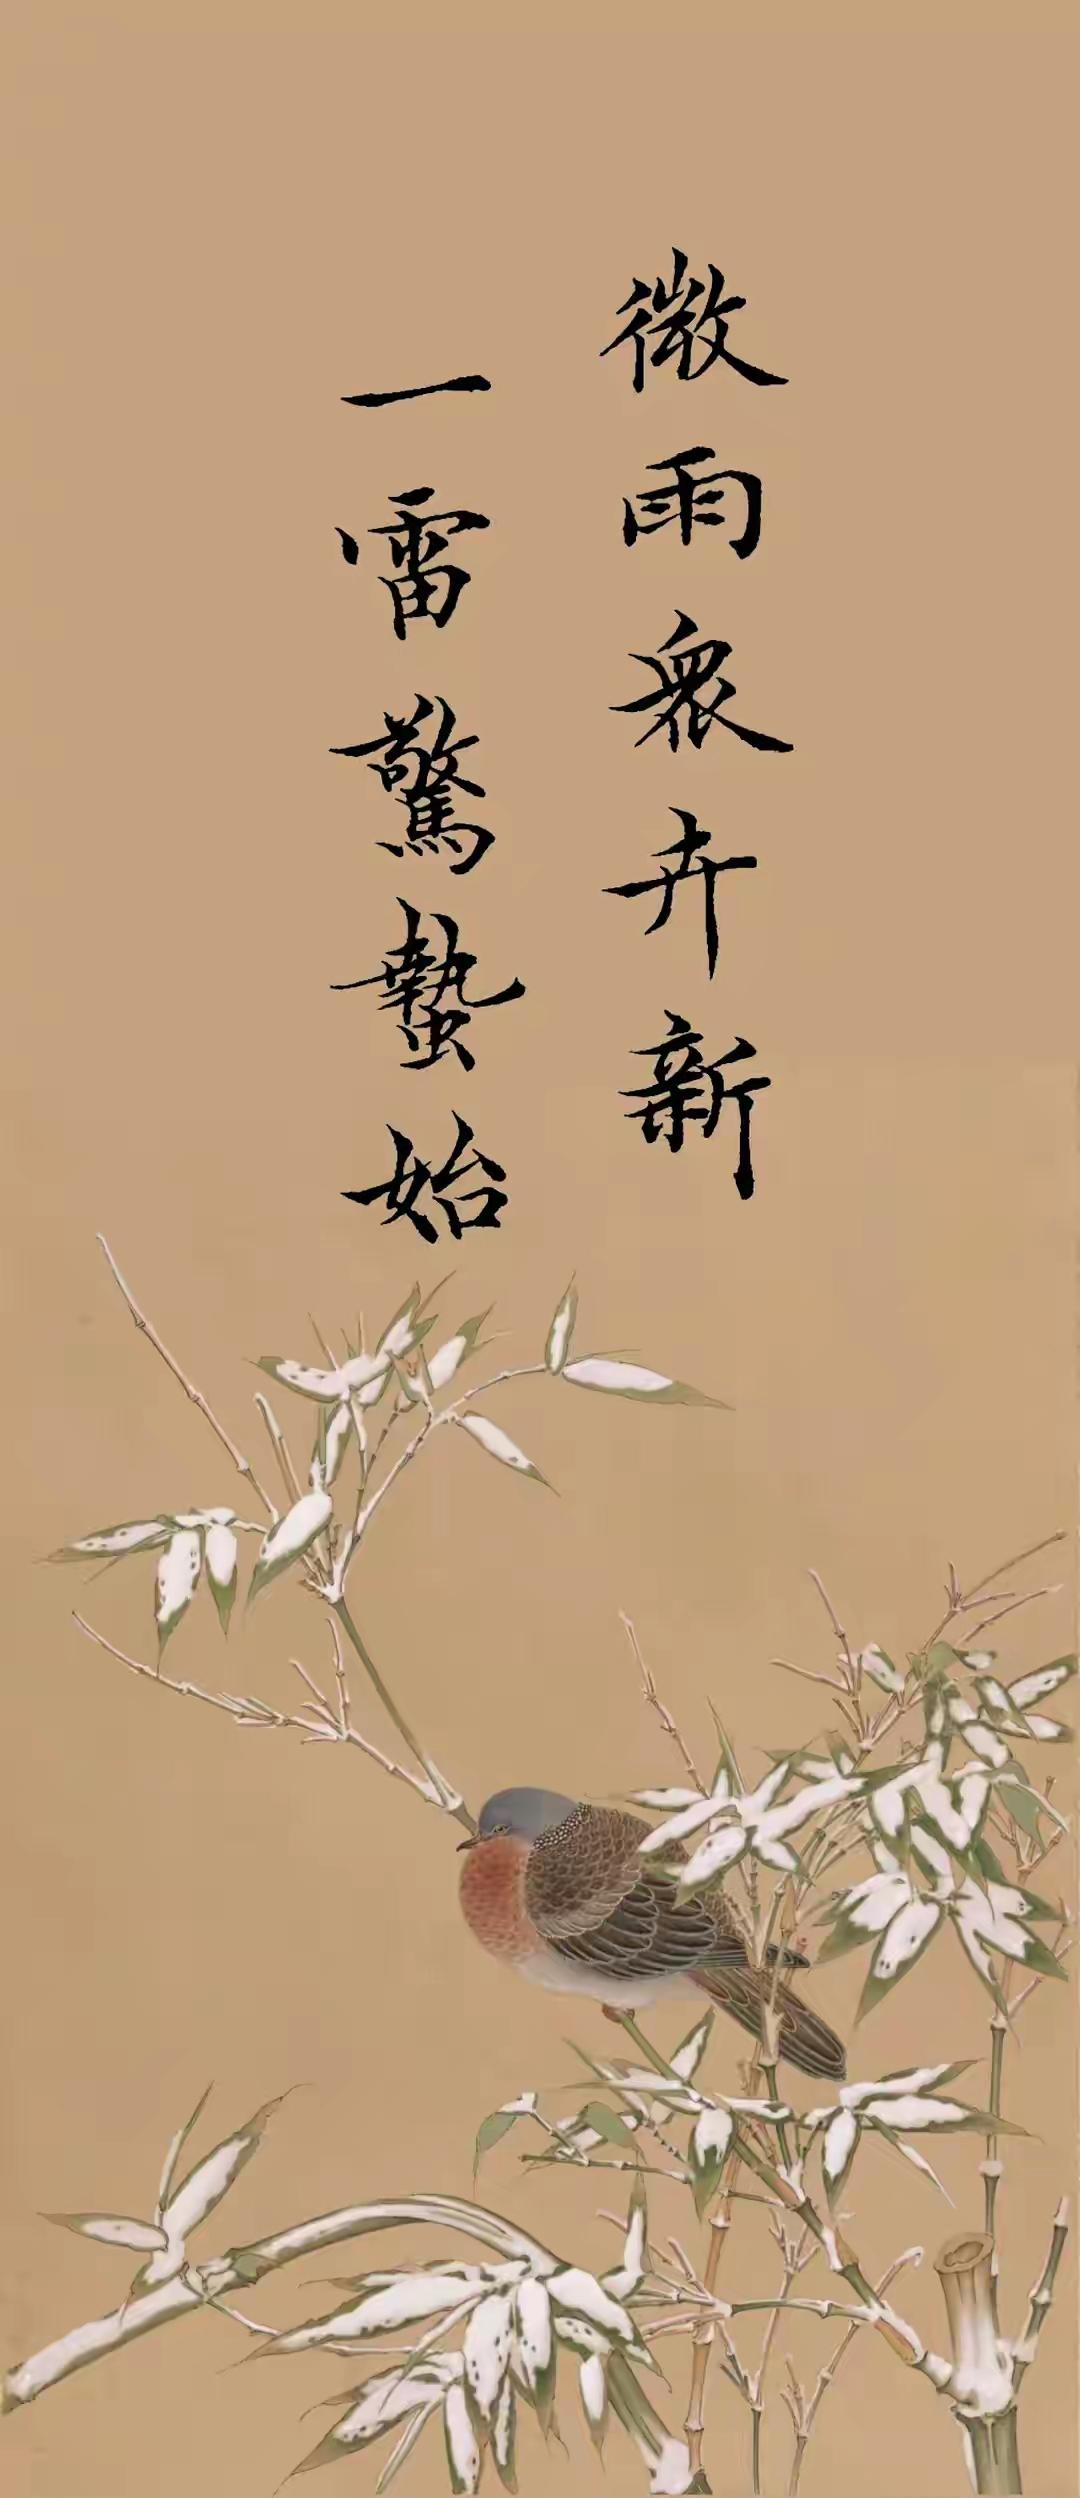 微雨衆卉新
一雷驚蟄始